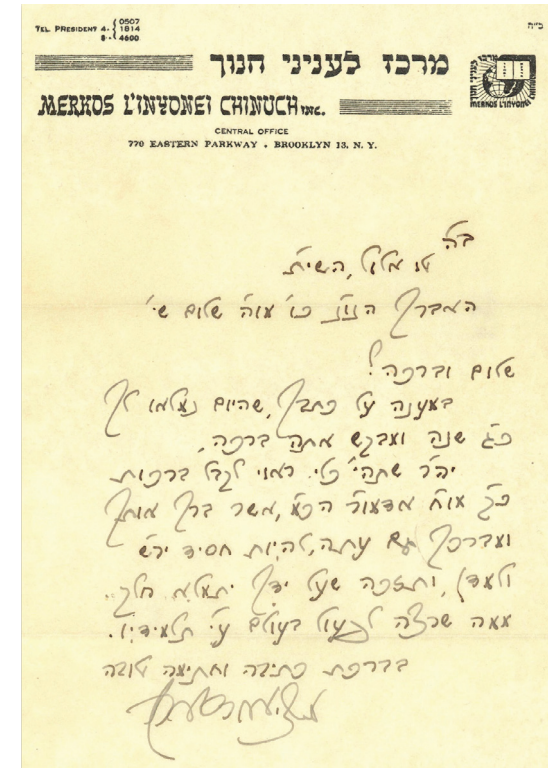 TEL. PRESIDENT 4-0507
1814
8-4600
מרכז לעניני חנוך
MERKOS L'INYONEI CHINUCH INC.
MERKOS L'INYONEI
CENTRAL OFFICE
770 EASTERN PARKWAY • BROOKLYN 13, N. Y.
ב"ה
טו אלול, השי"ת
האברך הנו"נ כו' מוה' שלום שי'
שלום וברכה!
במענה על כתבך, שהיום נמלאו לך
כ"ג שנה ומבקש אתה ברכה,
יה"ר שתהי' כלי ראוי לקבל ברכות
כ"ק מו"ח אדמו"ר הכ"מ, אשר ברך אותך
ומברכך גם עתה, להיות חסיד יר"ש
ולמדן, ותזכה שעל ידך יתמלא חלק
ממה שרצה לפעול בעולם ע"י תלמידיו.
בברכת כתיבה וחתימה טובה